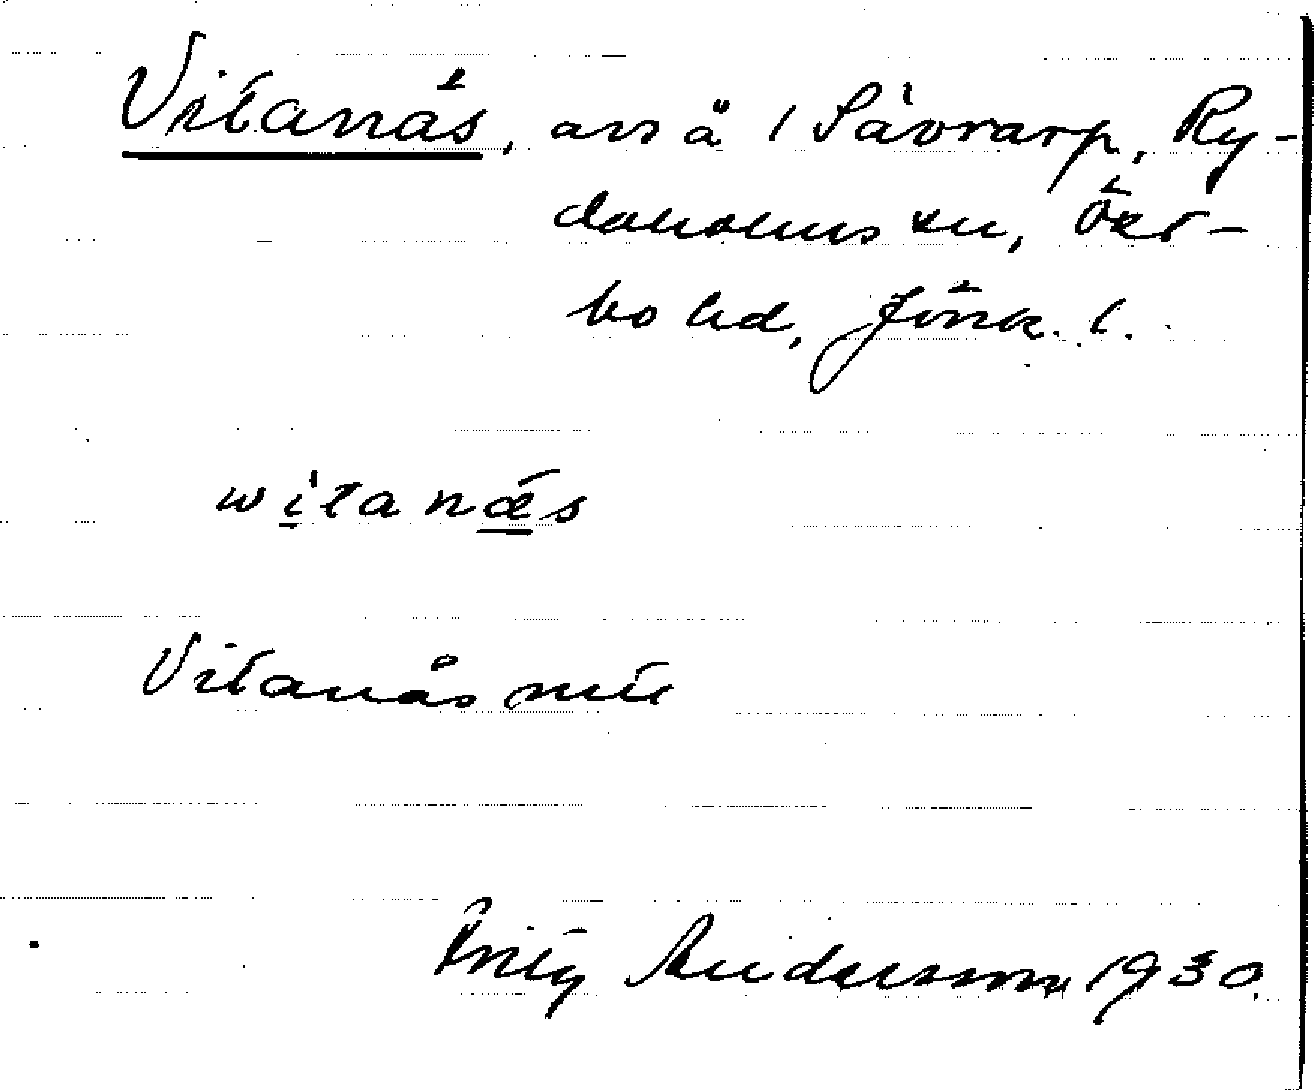 Vitanäs, avs å i Sävrarp, Ry-
daholms sn, Öst-
bo hd, Jönk. l.
witanæs
Vitanäs
Fritz Andersson 1930.